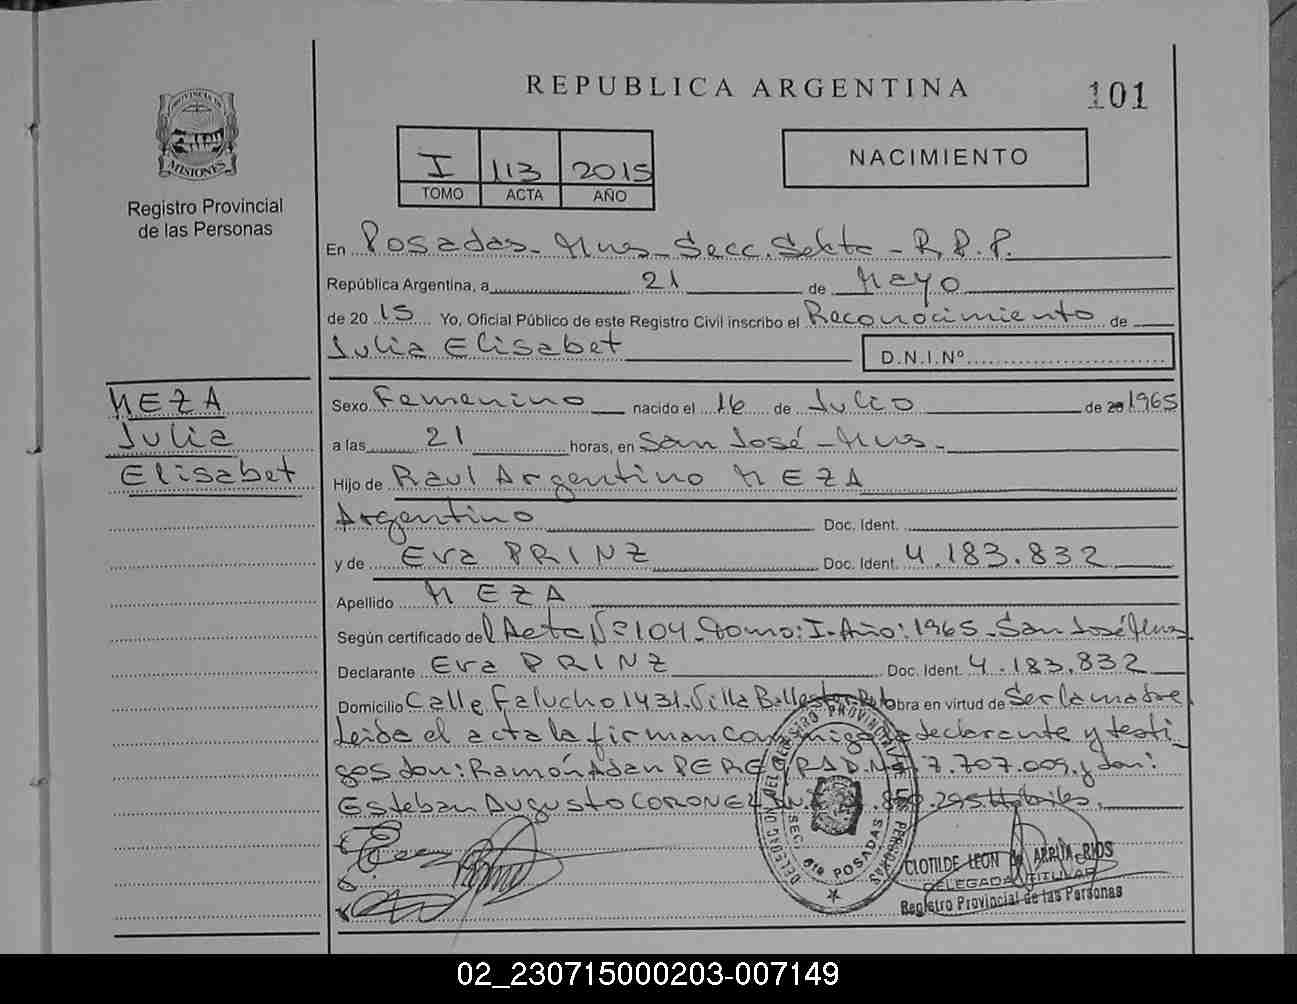 REPUBLICA ARGENTINA
101
PROVINCIA DE
MISIONES
Registro Provincial
de las Personas
I 113 2015
TOMO ACTA AÑO
NACIMIENTO
En Posadas - Mnes - Secc. Sexta - R.P.P.
República Argentina, a 21 de Mayo
de 2015 Yo, Oficial Público de este Registro Civil inscribo el Reconocimiento de
Julia Elisabet
D.N.I.Nº
MEZA
Julia
Elisabet
Sexo Femenino nacido el 16 de Julio de 20 1965
a las 21 horas, en San José - Mnes -
Hijo de Raul Argentino MEZA
Argentino Doc. Ident.
y de Eva PRINZ Doc. Ident. 4.183.832
Apellido MEZA
Según certificado del Acta Nº 104. Tomo: I. Año: 1965. San José Mnes
Declarante Eva PRINZ Doc. Ident. 4.183.832
Domicilio Calle Falucho 1431. Villa Ballester obra en virtud de Ser la madre
Leida el acta la firman conmigo declarante y testi-
gos don: Ramón Adan 7.707.009. y don:
Esteban Augusto CORONEL 295 Hábiles.
DELEGACION DEL REGISTRO PROVINCIAL DE LAS PERSONAS
SEC. 6ta POSADAS
CLOTILDE LEON de ARRUA RIOS
DELEGADA TITULAR
Registro Provincial de las Personas
02_230715000203-007149